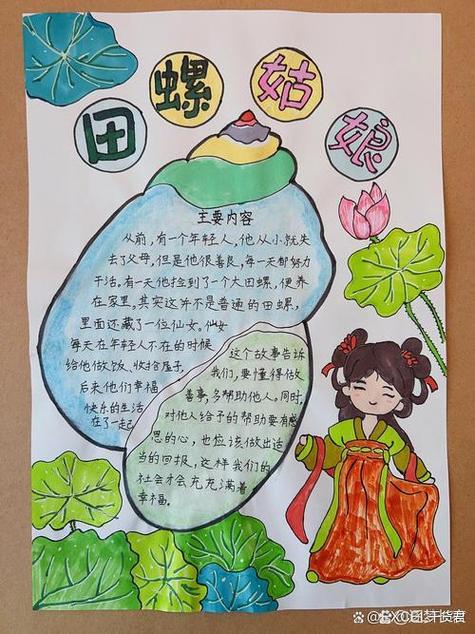 田螺姑娘
主要内容
从前,有一个年轻人,他从小就失
去了父母,但是他很善良,每一天都努力
干活。有一天他捡到了一个大田螺,便养
在家里,其实这并不是普通的田螺,
里面还藏了一位仙女。仙女
每天在年轻人不在的时候
给他做饭、收拾屋子,
后来他们幸福
快乐的生活
在了一起。
这个故事告诉
我们,要懂得做
善事,多帮助他人。同时,
对他人给予的帮助要有感
恩的心,也应该做出适
当的回报,这样我们的
社会才会充充满着
幸福。